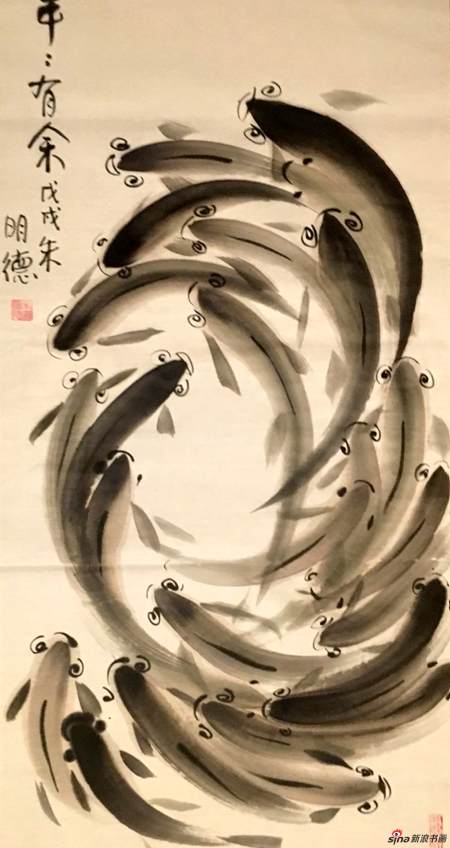 年〻有余
戊戌朱
明德
sina新浪书画